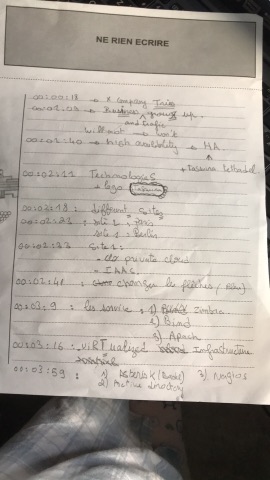 NE RIEN ECRIRE
00:00:18 → x company Trio
00:01:09 → Business growing up.
and trafic
will not → won't
00:01:40 → high availability → HA
+ Yassina
00:02:11 Technologies
+ logo
00:02:18 : different sites
00:02:21 : site 1, Paris
site 2 : Berlin
00:02:33 Site 1 :
- private cloud
- IAAS.
00:02:41 : changer les flèches
00:03:9 : les service : 1) Zimbra
2) Bind
3) Apach
00:03:16 : viRTualized Infrastructure
00:03:59 : 1) Asterisk 3) Nagios
2) Active directory